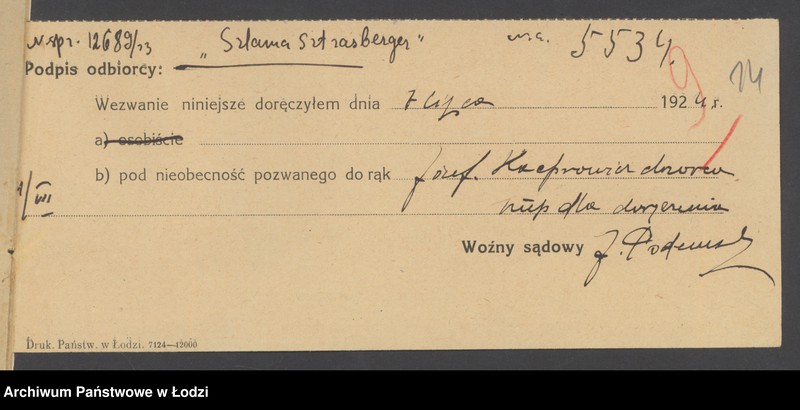 N. spr. 12689/23 „Szlama Sztrasberger" n.a. 5534. 9 14
Podpis odbiorcy:
Wezwanie niniejsze doręczyłem dnia 7 lipca 1924 r.
a) osobiście
b) pod nieobecność pozwanego do rąk Józef. Kacprowicz dozorca
VIII
dla doręczenia
Woźny sądowy J.
Druk. Państw. w Łodzi. 7124—42000
Archiwum Państwowe w Łodzi